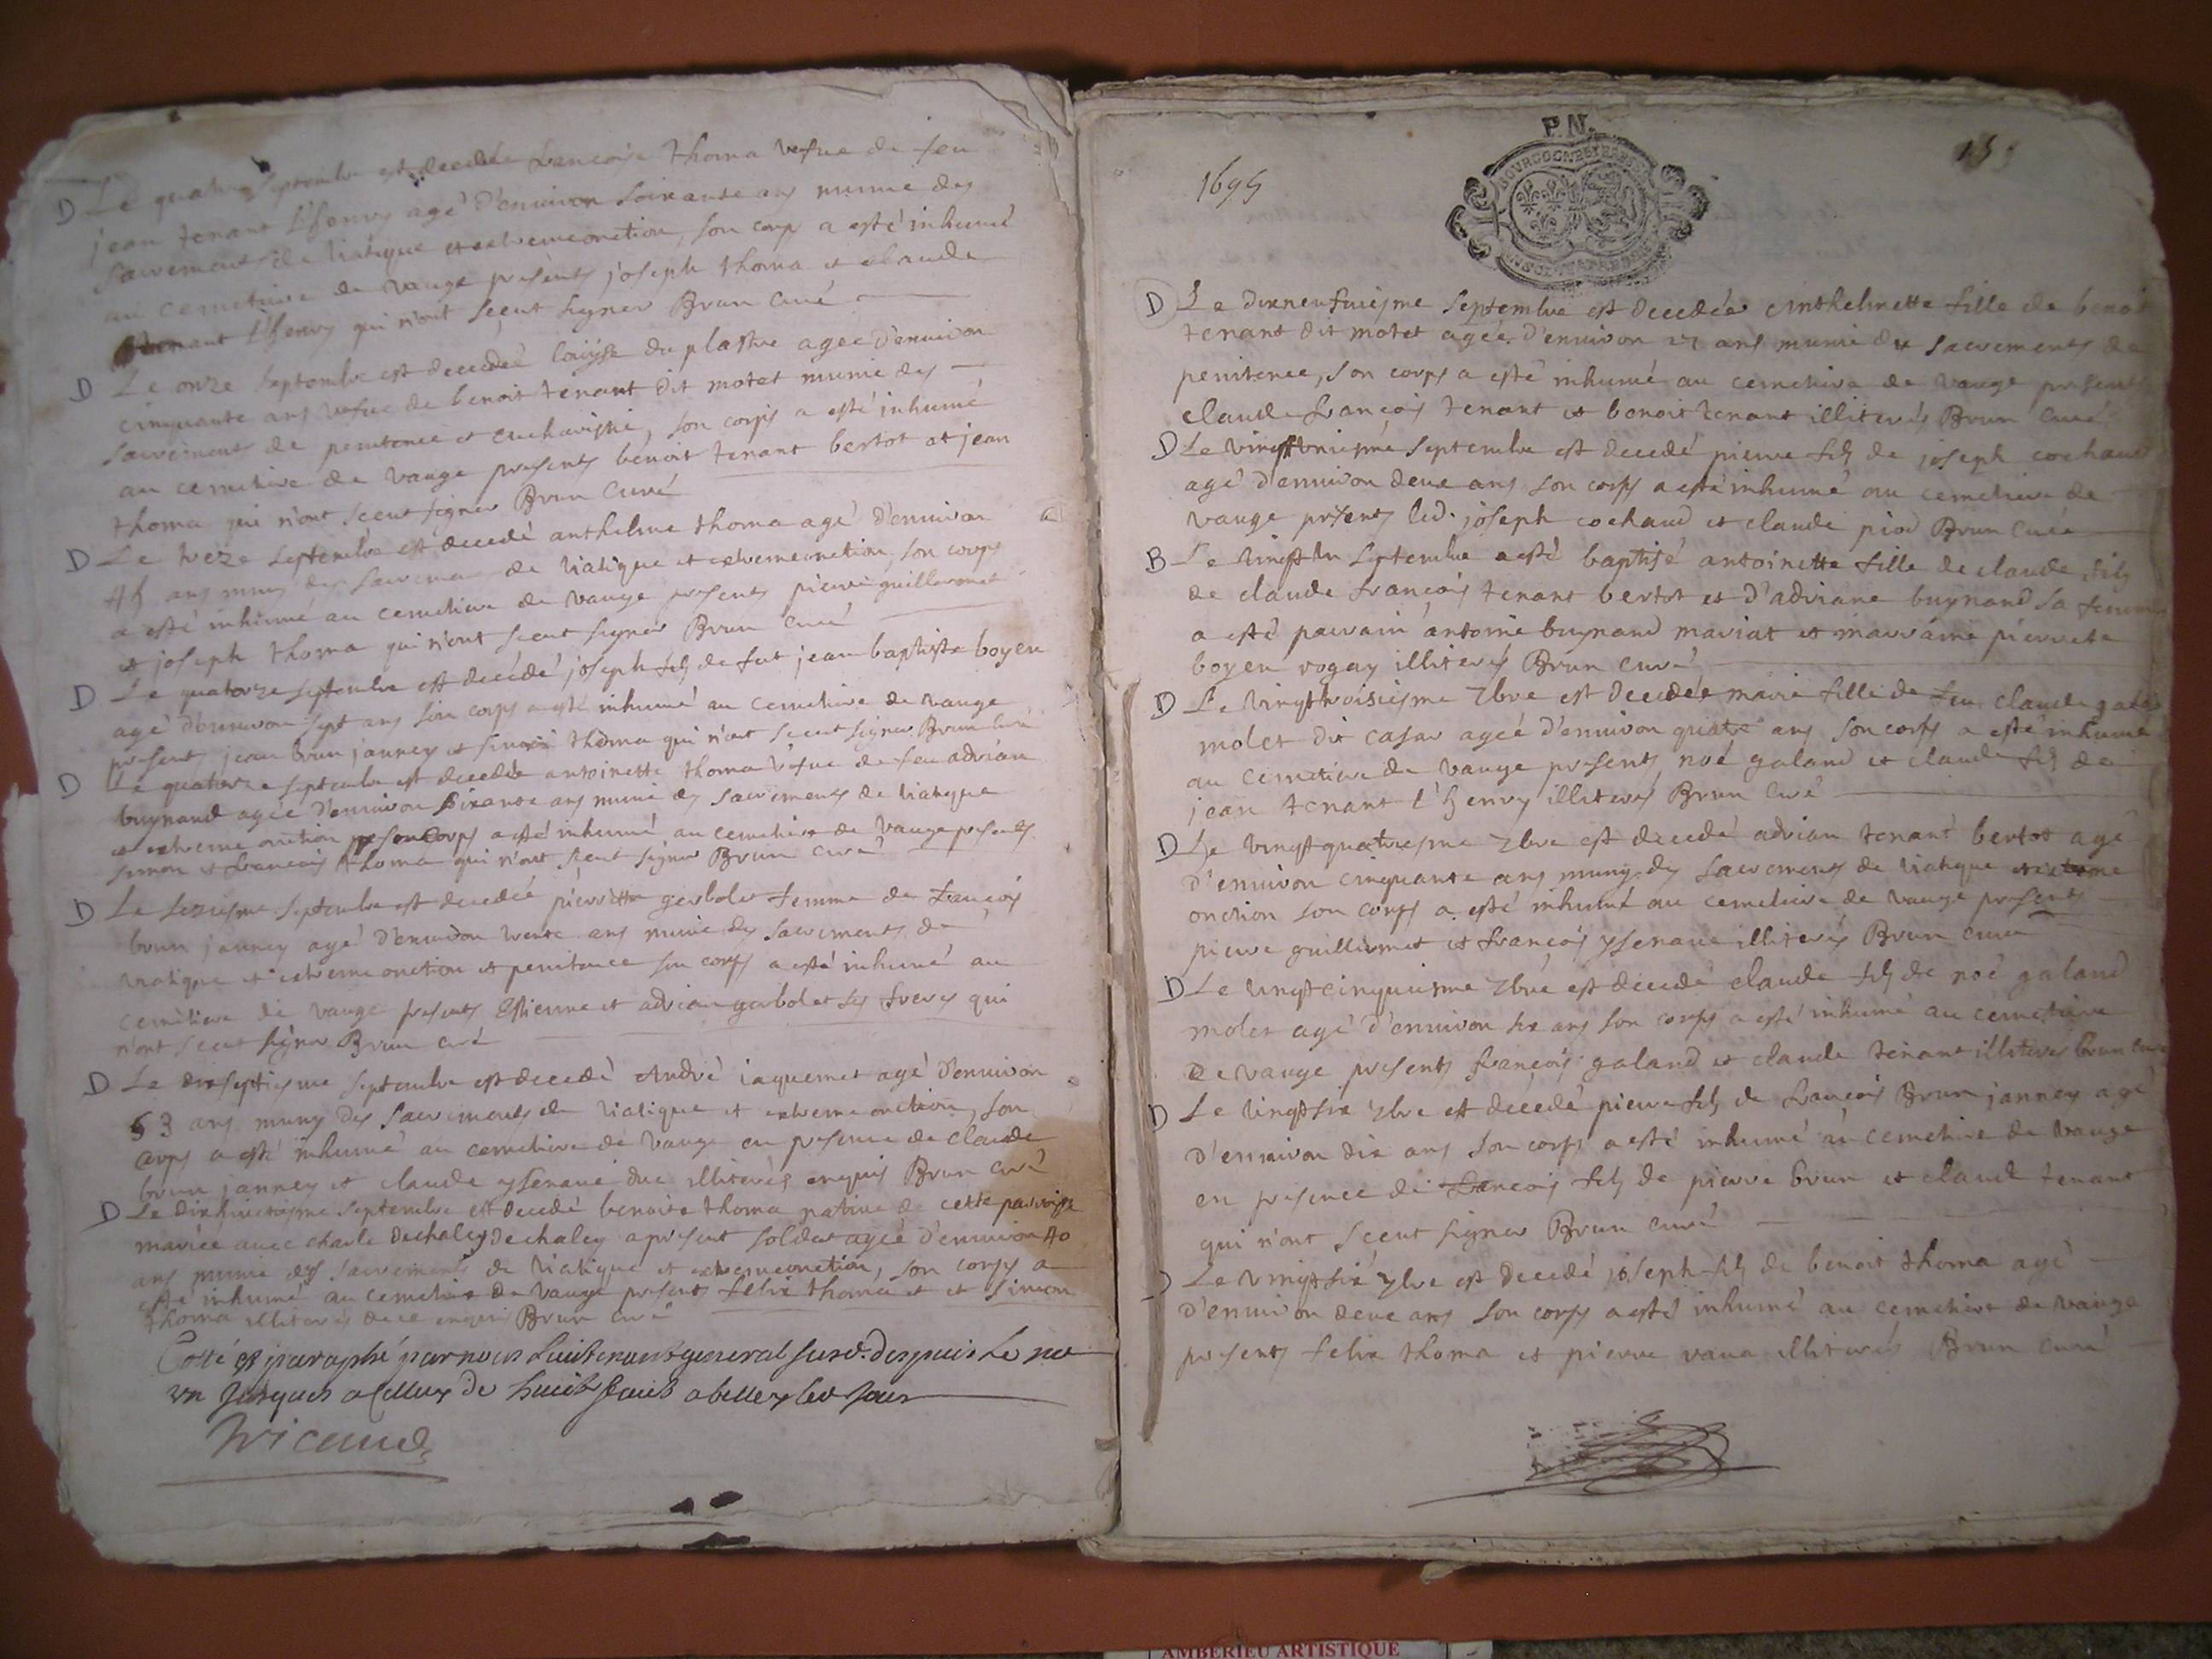 D Le quatre septembre est decedée françoise thoma vefue de feu
jean tenant l'henry agé d'enuiron soixante ans munie des
sacrements de viatique et extremeonction, son corp a esté inhumé
au cemetiere de vauge presents joseph thoma et claude
tenant l'henry qui n'ont sçeut signer Brun curé
D Le onze septembre est decedée loüyse du plastre agee d'enuiron
cinquante ans vefue de benoit tenant dit motet munie des
sacrements de penitence et eucharistie, son corps a esté inhumé
au cemetiere de vauge presents benoit tenant bertot et jean
thoma qui n'ont sceut signer Brun Curé
D Le treze septembre est decedé anthelme thoma agé d'enuiron
45 ans muny des sacrements de viatique et extremeonction, son corps
a esté inhumé au cemetiere de vauge presents pierre guillermet
et joseph thoma qui n'ont sceut signer Brun curé
D Le quatorze septembre est decédé joseph fils de fut jean baptiste boyeu
agé d'enuiron sept ans son corps a esté inhumé au cemetiere de vauge
presents jean brun janney et simon thoma qui n'ont sceut signer Brun curé
D Le quatorze septembre est decedée antoinette thoma vefue de feu adrian
buynand agée d'enuiron sixante ans munie des sacrements de viatique
et extreme onction son corps a esté inhumé au cemetiere de vauge presents
simon et françois thoma qui n'ont sceut signer Brun curé
D Le seziesme septembre est decedée pierrette gerbolet femme de françois
brun janney agé d'enuiron trente ans munie des sacrements de
viatique et extreme onction et penitence son corps a esté inhumé au
cemetiere de vauge presents Estienne et adrian gerbolet ses freres qui
n'ont sceut signer Brun curé
D Le dixseptiesme septembre est decedé André iaquemet agé d'enuiron
53 ans muny des sacrements de viatique et extreme onction, son
corps a esté inhumé au cemetiere de vauge en presence de claude
brun janney et claude ysenaue duc illiterés enquis Brun curé
D Le dixhuictiesme septembre est decedé benoite thoma natiue de cette parroisse
mariée auec charle dechaley dechaley a present soldat agée d'enuiron 40
ans munie des sacrements de viatique et extremeonction, son corps a
esté inhumé au cemetiere de vauge presents felix thoma et et simon
thoma illiterés de ce enquis Brun curé
Cotté et paraphé par nous Lieutenant general susd. despuis le no
un jusques a celluy de huict faict a belley led jour
Tricaud
P.N.
1695
D Le dixneufuiesme septembre est decedée anthelmette fille de benoit
tenant dit motet agée d'enuiron 27 ans munie du sacrements de
penitence, son corps a esté inhumé au cemetiere de vauge presents
claude françois tenant et benoit tenant illiterés Brun curé
D Le vingtvniesme septembre est decedé pierre fils de joseph cochaud
agé d'enuiron deux ans son corps a esté inhumé au cemetiere de
vauge presents led. joseph cochaud et claude piod Brun curé
B Le vingt vn septembre a esté baptisé antoinette fille de claude fils
de claude françois tenant bertot et d'adriane buynand sa femme
a esté parrain antoine buynand mariat et marraine pierrete
boyeu rogay illiterés Brun curé
D Le vingttroisiesme 7bre est decedée marie fille de feu claude galand
molet dit casar agée d'enuiron quatre ans son corps a esté inhumé
au cemetiere de vauge presents noé galand et claude fils de
jean tenant l'henry illiteres Brun curé
D Le vingtquatriesme 7bre est decedé adrian tenant bertot agé
d'enuiron cinquante ans muny des sacrements de viatique et extreme
onction son corps a esté inhumé au cemetiere de vauge presents
pierre guillermet et françois ysenaue illiterés Brun curé
D Le vingtcinquiesme 7bre est decedé claude fils de noé galand
molet agé d'enuiron six ans son corps a esté inhumé au cemetiere
de vauge presents françois galand et claude tenant illiteres brun curé
D Le vingtsix 7bre est decedé pierre fils de françois Brun janney agé
d'enuiron dix ans son corps a esté inhumé au cemetiere de vauge
en presence de françois fils de pierre brun et claude tenant
qui n'ont sceut signer Brun curé
Le vingtsix 7bre est decedé joseph fils de benoit thoma agé
d'enuiron deux ans son corps a esté inhumé au cemetiere de vauge
presents felix thoma et pierre vaua illiterés Brun curé
AMBERIEU ARTISTIQUE